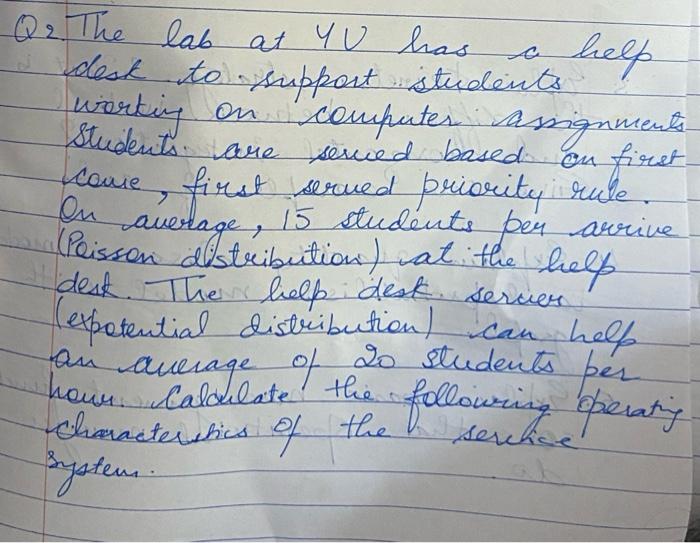 Q2. The lab at YU has a help
desk to support students
working on computer assignments
Students are served based on first
come, first served priority rule.
On average, 15 students per arrive
(Poisson distribution) at the help
desk. The help desk server
(expotential distribution) can help
an average of 20 students per
hour. Calculate the following operating
characteristics of the service
system.